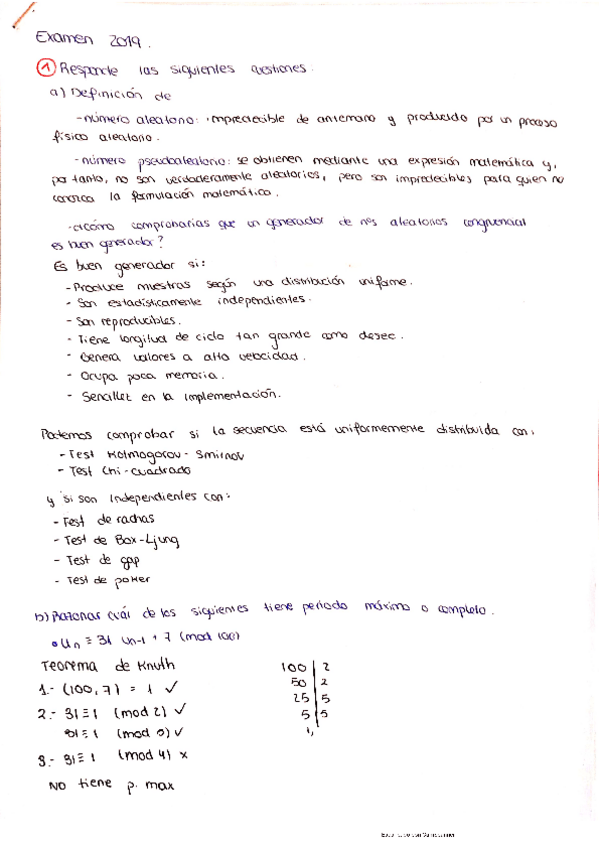 Examen 2019.
① Responde las siguientes cuestiones.
a) Definición de
- número aleatorio: impredecible de antemano y producido por un proceso
físico aleatorio.
- número pseudoaleatorio: se obtienen mediante una expresión matemática y,
por tanto, no son verdaderamente aleatorios, pero son impredecibles para quien no
conozca la formulación matemática.
- ¿cómo comprobarías que un generador de nºs aleatorios congruencial
es buen generador?
Es buen generador si:
- Produce muestras según una distribución uniforme.
- Son estadísticamente independientes.
- Son reproducibles.
- Tiene longitud de ciclo tan grande como desee.
- Genera valores a alta velocidad.
- Ocupa poca memoria.
- Sencillez en la implementación.
Podemos comprobar si la secuencia está uniformemente distribuida con:
- Test Kolmogorov - Smirnov
- Test Chi-cuadrado
y si son independientes con:
- Test de rachas
- Test de Box-Ljung
- Test de gap
- Test de poker
b) Razonar cuál de los siguientes tiene periodo máximo o completo.
• Un ≡ 31 Un-1 + 7 (mod 100)
Teorema de Knuth
1.- (100,7) = 1 ✓
2.- 31≡1 (mod 2) ✓
31≡1 (mod 5) ✓
3.- 31≡1 (mod 4) x
NO tiene p. max
100 | 2
50 | 2
25 | 5
5 | 5
1,